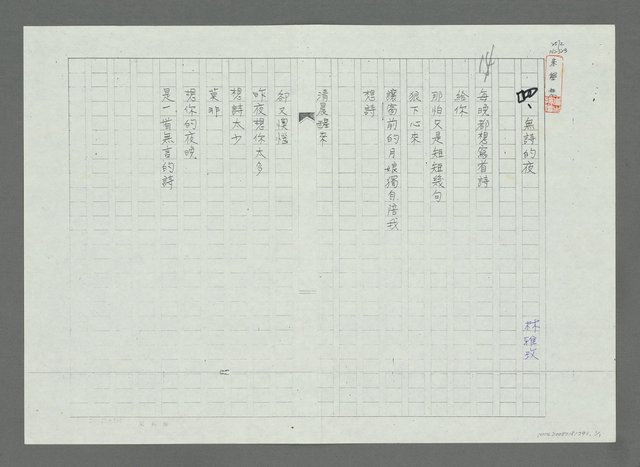 14
四、無詩的夜
林雅玫
每晚都想寫首詩
給你
那怕只是短短幾句
狠下心來
讓窗前的月娘獨自陪我
想詩
清晨醒來
卻又懊惱
昨夜想你太多
想詩太少
莫非
想你的夜晚
是一首無言的詩